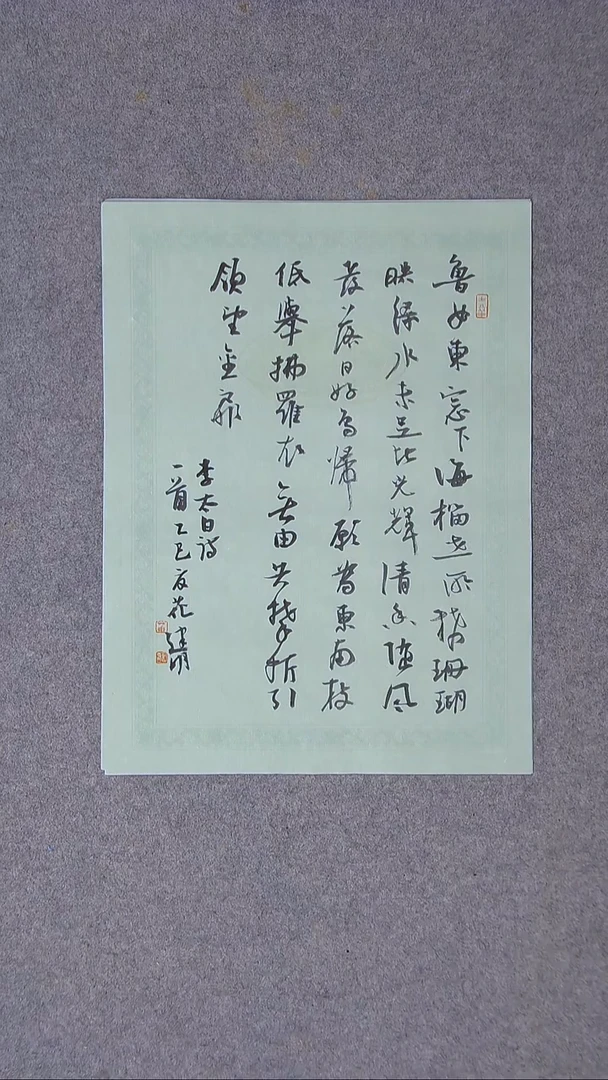 魯女東窓下海榴世所稀珊瑚
映綠水未足比光輝清香隨風
發落日好鳥歸願為東南枝
低舉拂羅衣無由共攀折引
領望金扉
李太白詩
一首乙巳